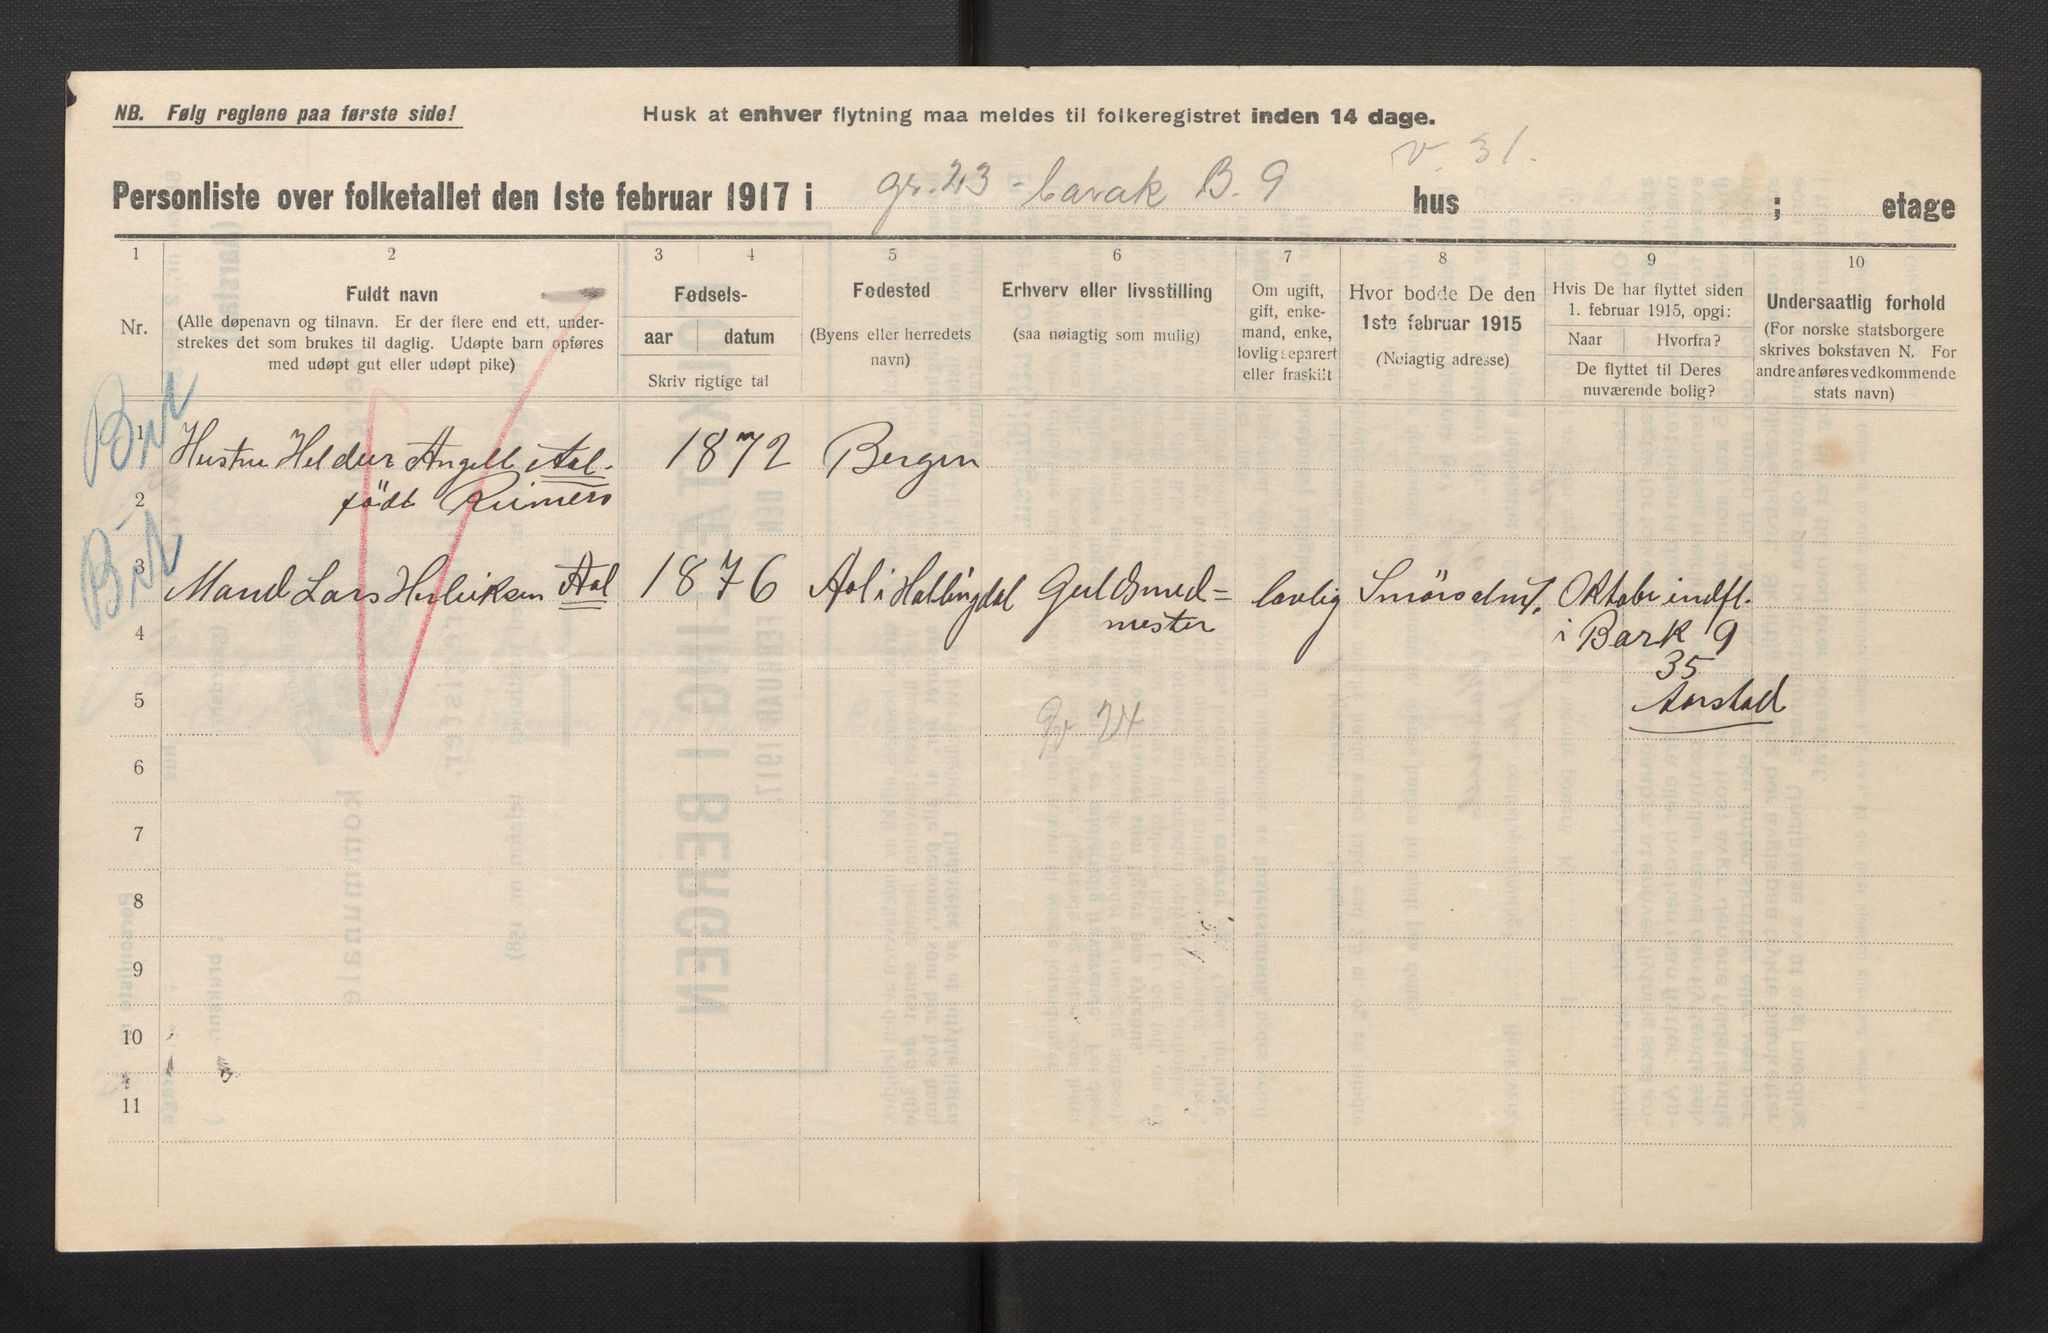 NB. Følg reglene paa første side!
Husk at enhver flytning maa meldes til folkeregistret inden 14 dage.
v. 31.
Personliste over folketallet den 1ste februar 1917 i gr. 23 - barak B. 9 hus ; etage
1 2 3 4 5 6 7 8 9 10
Nr.
Fuldt navn
(Alle døpenavn og tilnavn. Er der flere end ett, under-
strekes det som brukes til daglig. Udøpte barn opføres
med udøpt gut eller udøpt pike)
Fødsels-
aar datum
Skriv rigtige tal
Fødested
(Byens eller herredets
navn)
Erhverv eller livsstilling
(saa nøiagtig som mulig)
Om ugift,
gift, enke-
mand, enke,
lovlig separert
eller fraskilt
Hvor bodde De den
1ste februar 1915
(Nøiagtig adresse)
Hvis De har flyttet siden
1. februar 1915, opgi:
Naar Hvorfra?
De flyttet til Deres
nuværende bolig?
Undersaatlig forhold
(For norske statsborgere
skrives bokstaven N. For
andre anføres vedkommende
stats navn)
1 Hustru Angell Aal - 1872 Bergen
2 född Reimers
3 Mand Lars Aal 1876 Aal i Hallingdal Guldsmed= lovlig Oktober indfl.
4 mester i Bark 9
35
5 Aarstad
24
6
7
8
9
10
11